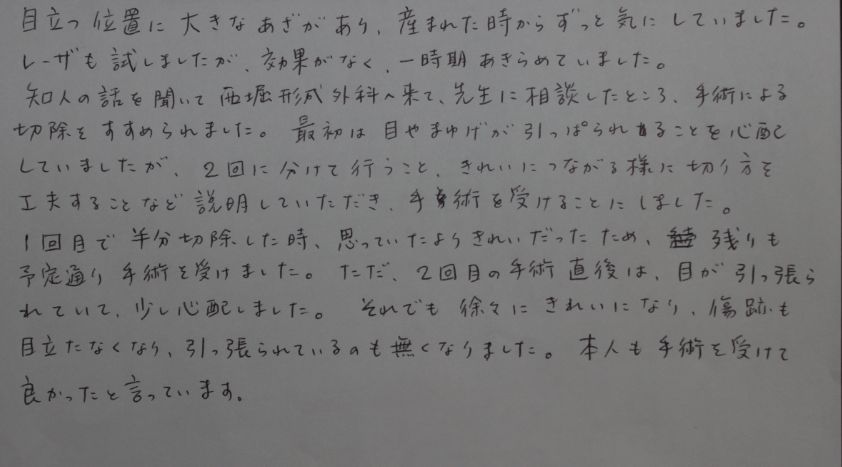 目立つ位置に大きなあざがあり、産まれた時からずっと気にしていました。
レーザも試しましたが、効果がなく、一時期あきらめていました。
知人の話を聞いて西堀形成外科へ来て、先生に相談したところ、手術による
切除をすすめられました。最初は目やまゆげが引っぱられることを心配
していましたが、2回に分けて行うこと、きれいにつながる様に切り方を
工夫することなど説明していただき、手術を受けることにしました。
1回目で半分切除した時、思っていたよりきれいだったため、残りも
予定通り手術を受けました。ただ、2回目の手術直後は、目が引っ張ら
れていて、少し心配しました。それでも徐々にきれいになり、傷跡も
目立たなくなり、引っ張られているのも無くなりました。本人も手術を受けて
良かったと言っています。